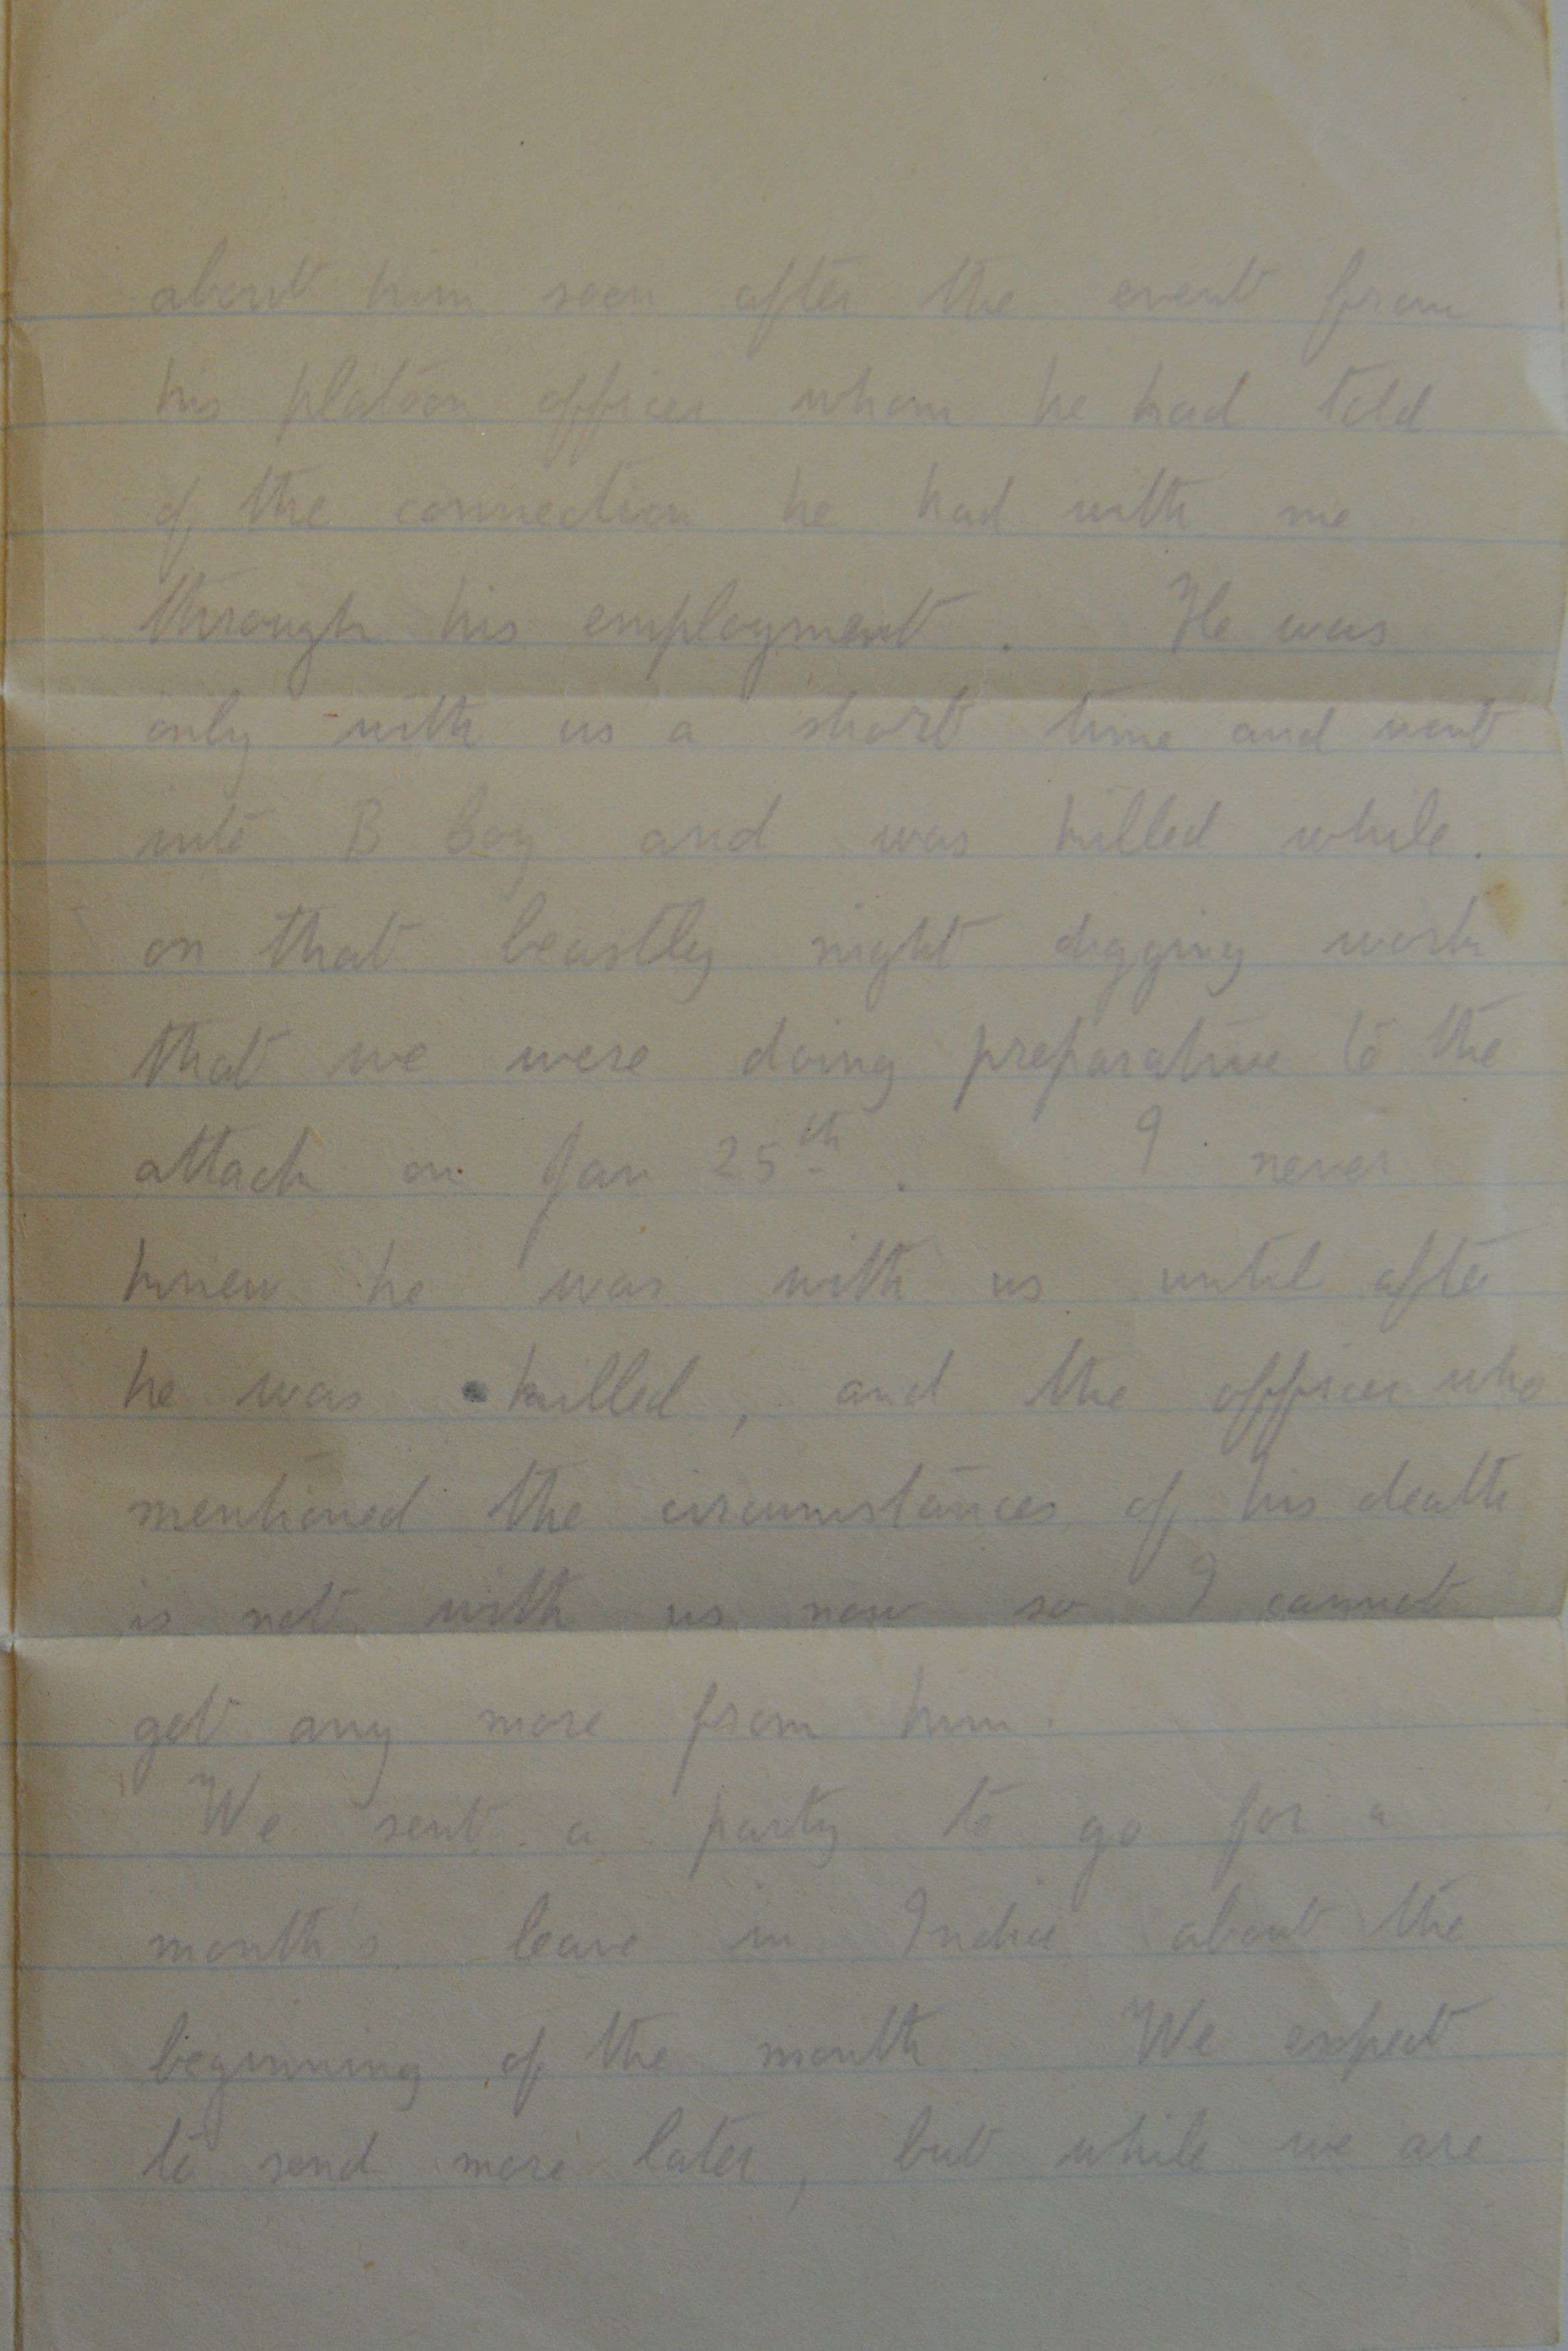 about him soon after the event from
his platoon officer whom he had told
of the connection he had with me
through his employment. He was
only with us a short time and went
into B Coy and was killed while.
on that beastly night digging work
that we were doing preparative to the
attack on Jan 25th. I never
knew he was with us until after
he was killed, and the officer who
mentioned the circumstances of his death
is not with us now so I cannot
get any more from him.
We sent a party to go for a
month's leave in India about the
beginning of the month We expect
to send more later, but while we are